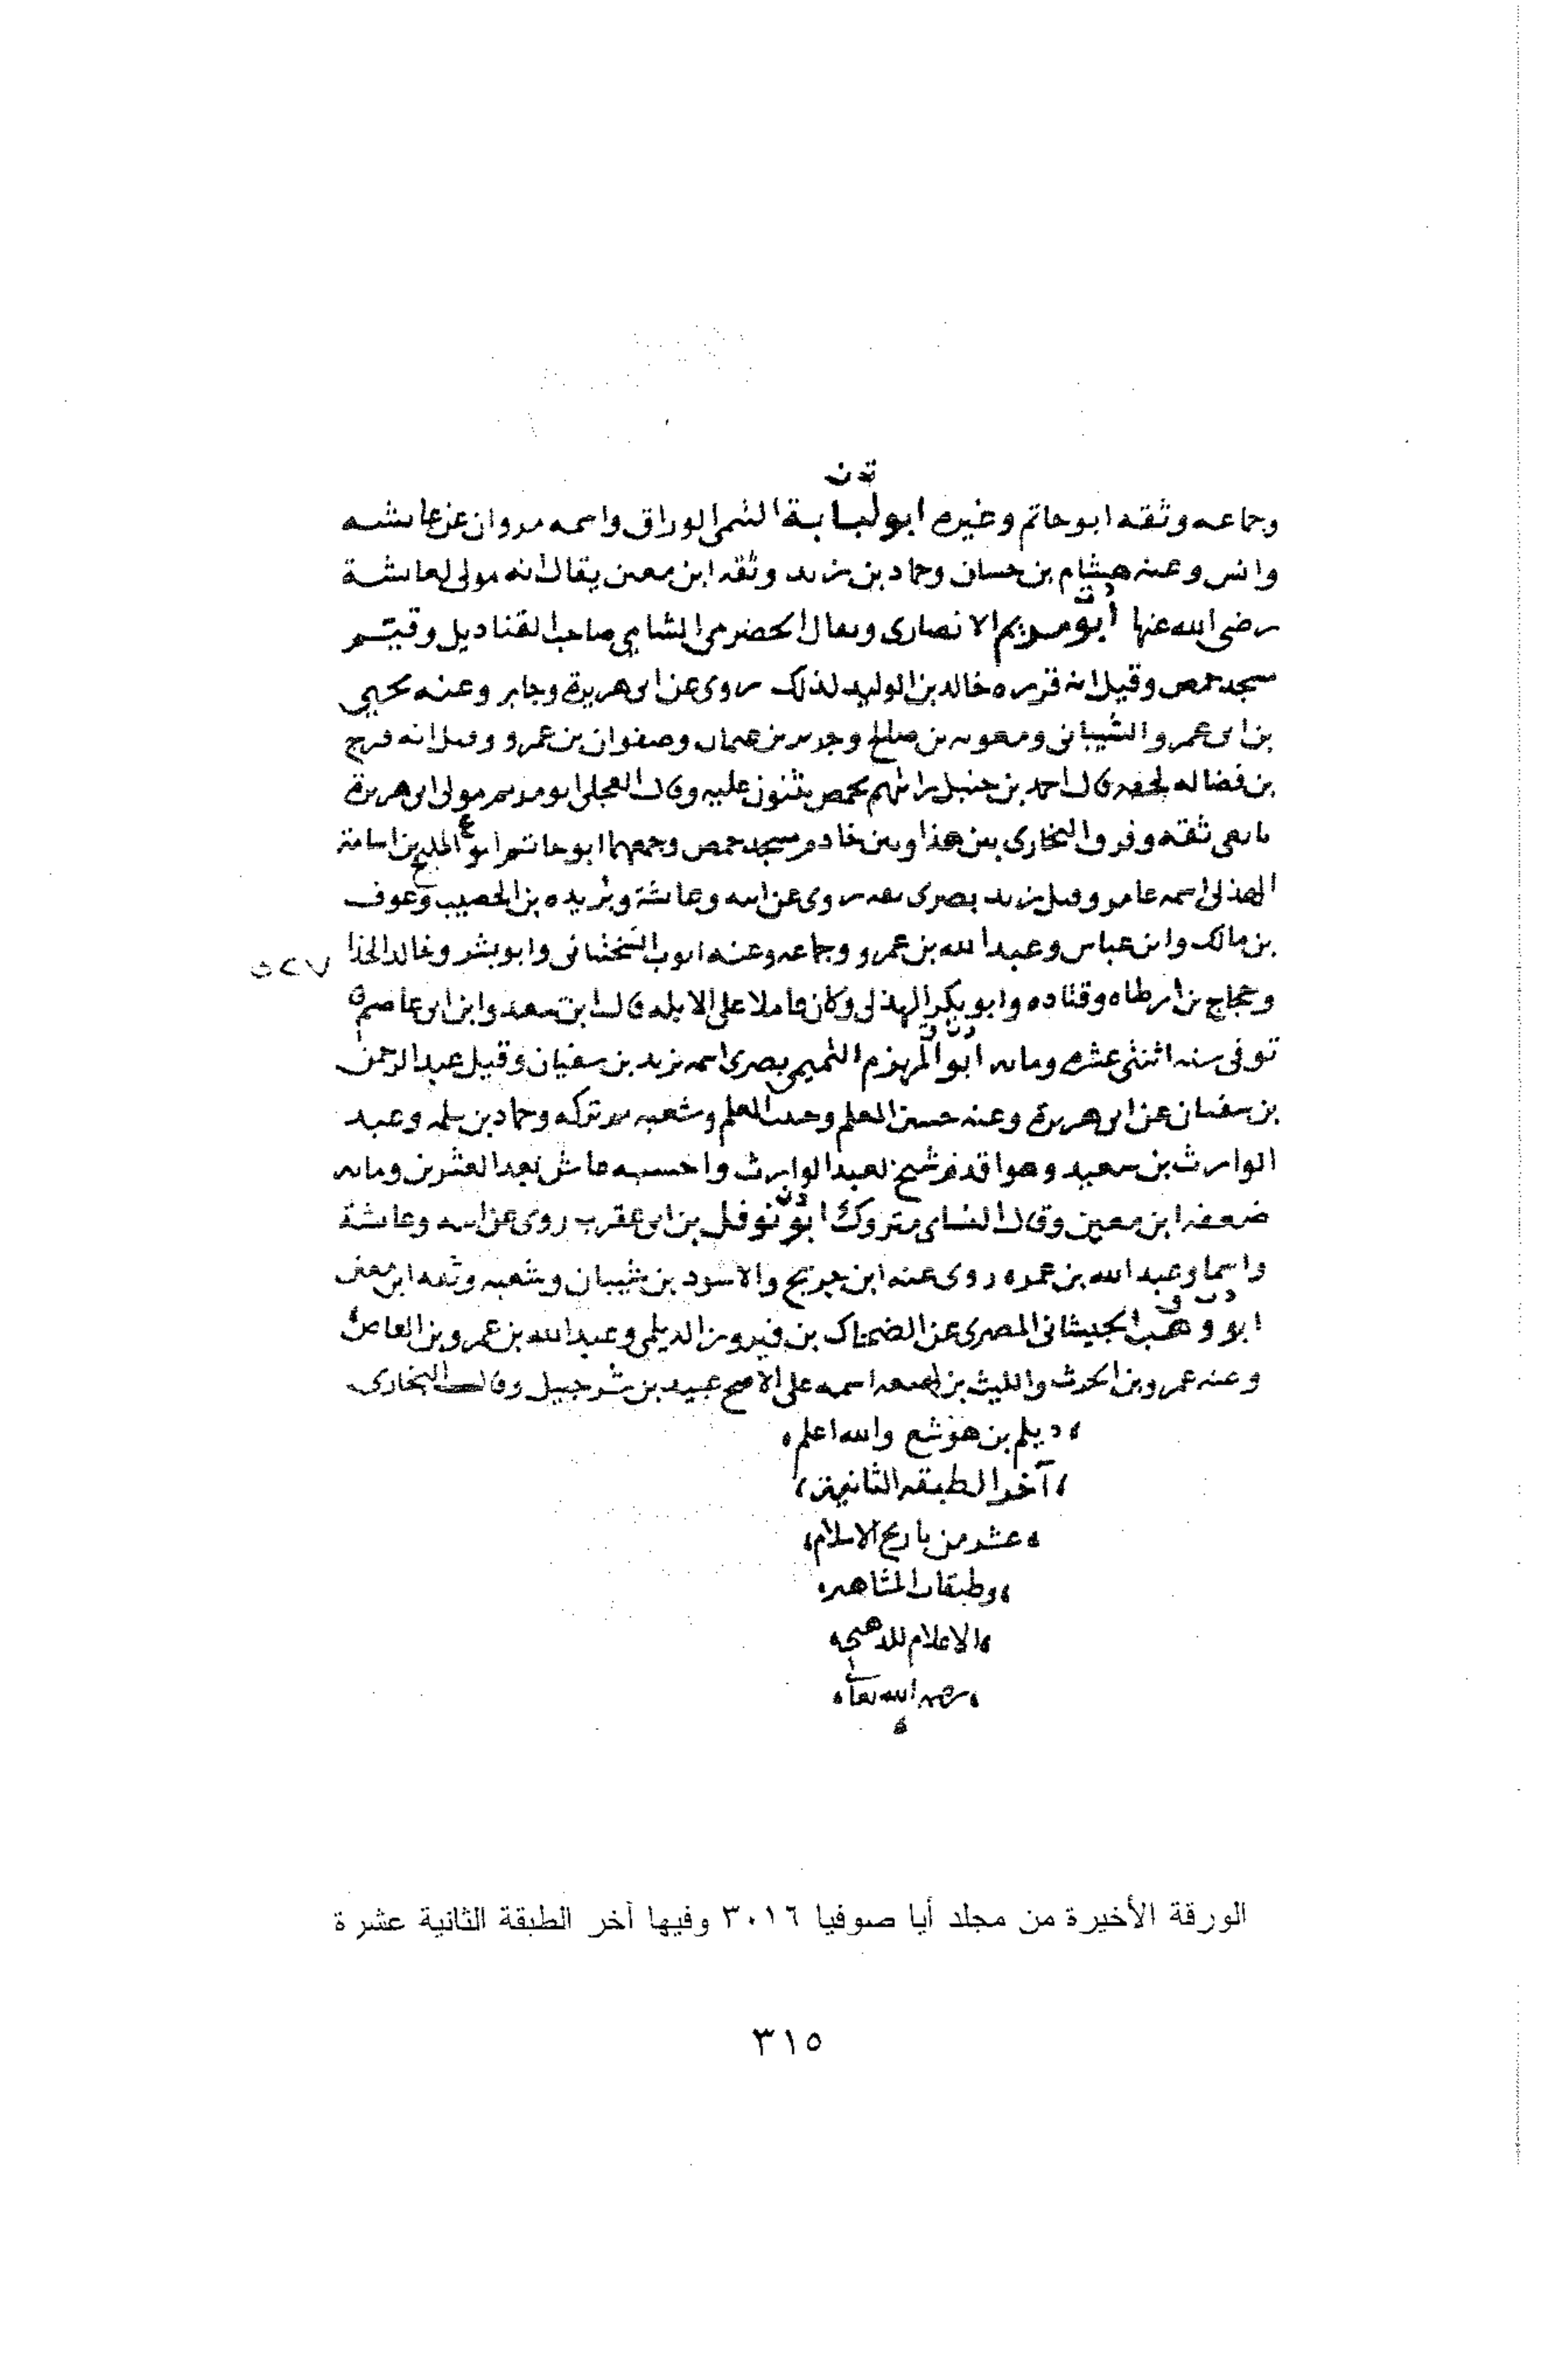 ت ن
وجماعه وثقه ابو حاتم وغيره ابو لبابة الوراق واسمه مروان عن عائشه
وانس وعنه هشام بن حسان وحماد بن زيد وثقه ابن معين يقال انه مولى لعائشة
رضى الله عنها ابو مريم الانصارى ويقال الحضرمى الشامى صاحب القناديل وقيم
مسجد حمص وقيل انه قرره خالد بن الوليد لذلك روى عن ابى هريرة وجابر وعنه يحيى
بن ابى عمرو الشيبانى ومعويه بن صالح وجرير بن عثمان وصفوان بن عمرو وقيل انه فرج
بن فضاله لحقه قال احمد بن حنبل رايتهم بحمص يثنون عليه وقال العجلى ابو مريم مولى ابى هريرة
تابعى ثقه وفرق البخارى بين هذا وبين خادم مسجد حمص وجمعهما ابو حاتم ابو المليح بن اسامة
ع
الهذلى اسمه عامر وقيل زيد بصرى ثقه روى عن ابيه وعائشة وبريده بن الحصيب وعوف
بن مالك وابن عباس وعبد الله بن عمرو وجماعه وعنه ايوب السختيانى وابو بشر وخالد الحذا
٥٢٧
وحجاج بن ارطاه وقتاده وابو بكر الهذلى وكان عاملا على الابله قال ابن سعد وابن ابى عاصم
د ت ق
توفى سنه اثنتى عشره ومايه ابو المهزم التميمى بصرى اسمه يزيد بن سفيان وقيل عبد الرحمن
بن سفيان عن ابى هريرة وعنه حسين المعلم وحبيب المعلم وشعبه ثم تركه وحماد بن سلمه وعبد
الوارث بن سعيد وهو اقدم شيخ لعبد الوارث واحسبه عاش بعد العشرين ومايه
د ن
ضعفه ابن معين وقال النساى متروك ابو نوفل بن ابى عقرب روى عن ابيه وعائشة
واسما وعبد الله بن عمر روى عنه ابن جريج والاسود بن شيبان وشعبه وثقه ابن معين
د ت ق
ابو وهب الجيشانى المصرى عن الضحاك بن فيروز الديلمى وعبد الله بن عمرو بن العاص
وعنه عمرو بن الحرث والليث بن لهيعه اسمه على الاصح عبيد بن شرحبيل وقال البخارى
ديلم بن هوشع والله اعلم
آخر الطبقه الثانية
عشر من تاريخ الاسلام
وطبقات المشاهير
والاعلام للذهبى
رحمه الله تعالى
الورقة الأخيرة من مجلد أيا صوفيا ٣٠١٦ وفيها آخر الطبقة الثانية عشرة
٣١٥